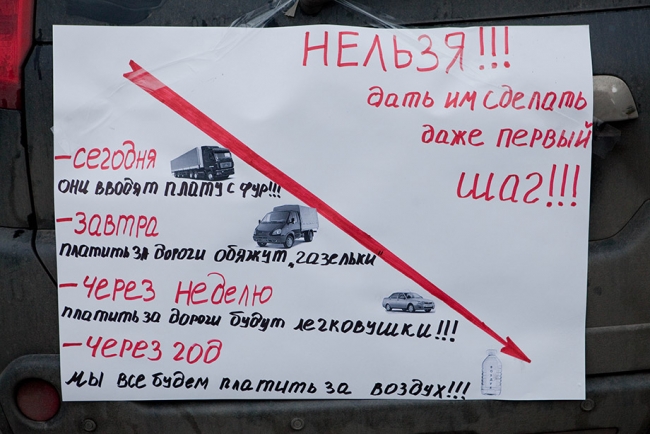 НЕЛЬЗЯ!!!
дать им сделать
даже первый
шаг!!!
-сегодня
они вводят плату с фур!!!
-завтра
платить за дороги обяжут „газельки"
-через неделю
платить за дороги будут легковушки!!!
-через год
мы все будем платить за воздух!!!